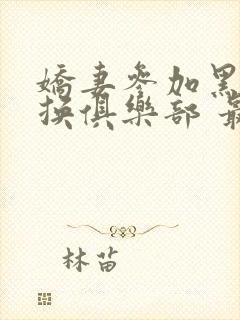 嬌妻參加黑
换俱樂部 最
林苗